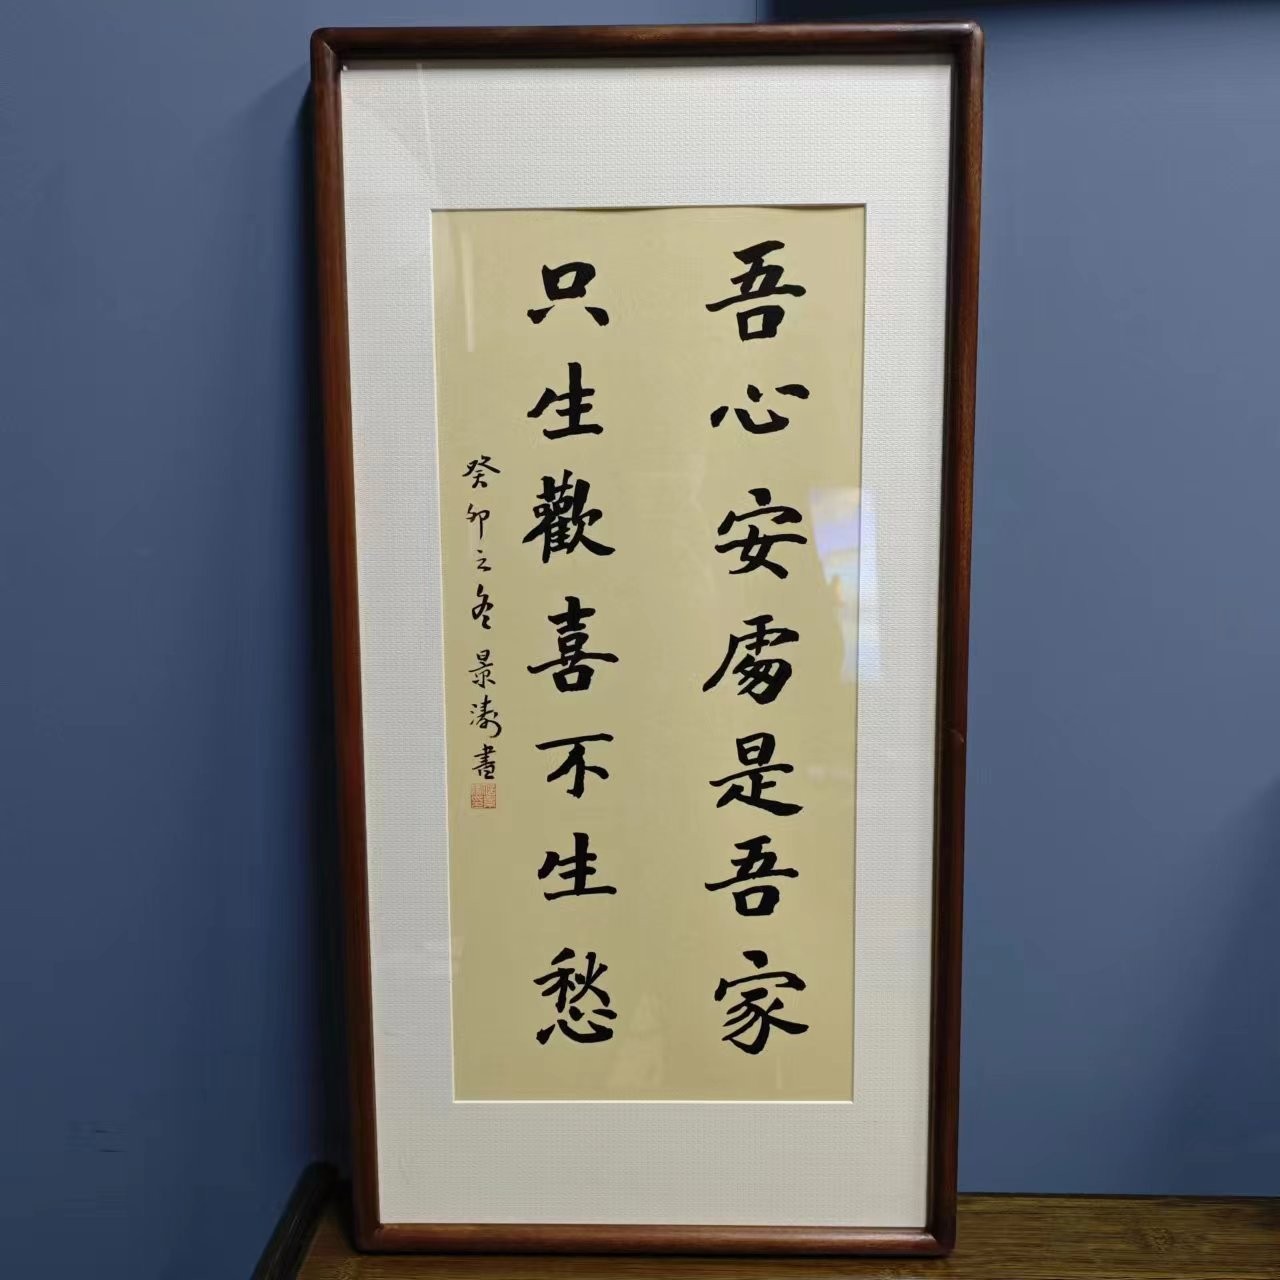 吾心安處是吾家
只生歡喜不生愁
癸卯之冬景濤書